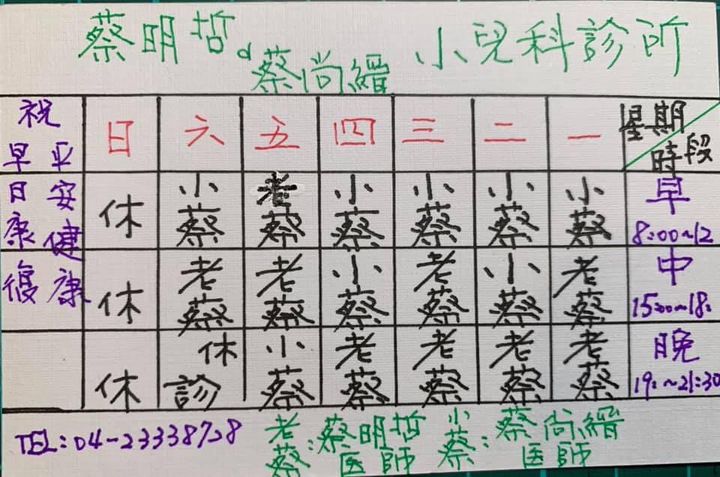 蔡明哲。蔡尚縉 小兒科診所
祝 早日康復 平安健康
日 六 五 四 三 二 一 星期 時段
休 小蔡 老蔡 小蔡 小蔡 小蔡 小蔡 早 8:00~12
休 老蔡 老蔡 小蔡 老蔡 小蔡 老蔡 中 15:00~18:
休 休診 小蔡 老蔡 老蔡 老蔡 老蔡 晚 19:~21:30
TEL:04-23338728 老蔡:蔡明哲醫師 小蔡:蔡尚縉醫師